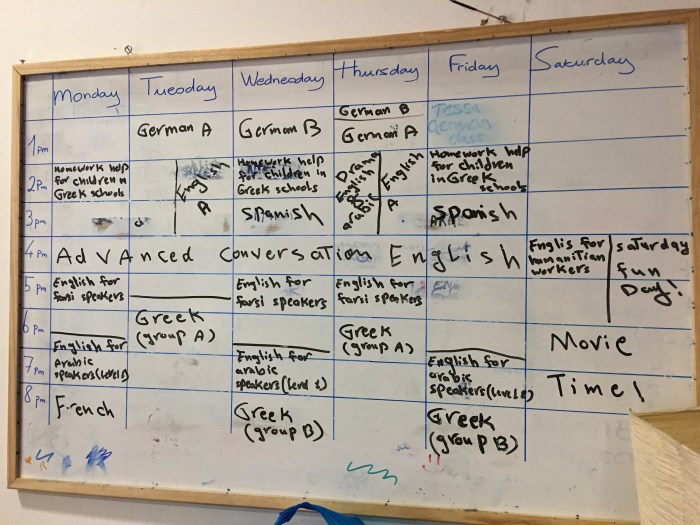 Monday Tueoday Wednesday Thursday Friday Saturday
German B
Tessa
German
class
1pm German A German B German A
2pm
Homework help
for children in
Greek schools
English
A
Homework help
for children in
Greek schools
Drama
English
arabic
English
A
Homework help
for children
in Greek
schools
3pm Spanish Spanish
4pm Advanced Conversation English
Englis for
humanitian
workers
saturday
fun
Day!
5pm
English for
farsi speakers
English for
farsi speakers
English for
farsi speakers
6pm
Greek
(group A)
Greek
(group A)
Movie
English for
Arabic
7pm
English for
arabic
English for
arabic
Time!
8pm
French
Greek
(group B)
Greek
(group B)